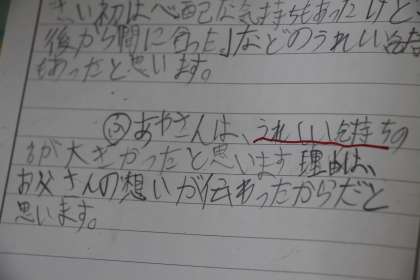 さい初は心配な気持ちもあったけど
後から「間に合った」などのうれしい気持
もあったと思います。
③あやさんは、うれしい気持ちの
方が大きかったと思います。理由は、
お父さんの想いが伝わったからだと
思います。